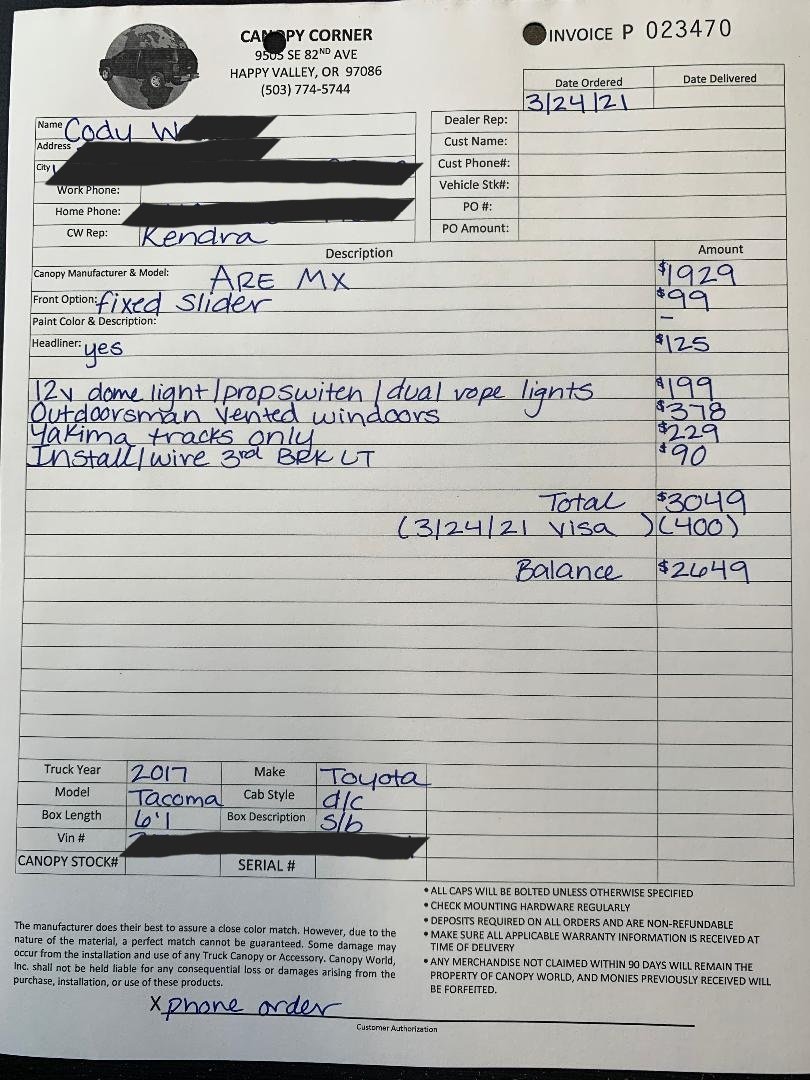 CANOPY CORNER
9505 SE 82ND AVE
HAPPY VALLEY, OR 97086
(503) 774-5744
INVOICE P 023470
Date Ordered Date Delivered
3/24/21
Name Cody W
Address
City
Work Phone:
Home Phone:
CW Rep: Kendra
Dealer Rep:
Cust Name:
Cust Phone#:
Vehicle Stk#:
PO #:
PO Amount:
Description Amount
Canopy Manufacturer & Model: ARE MX $1929
Front Option: fixed slider $99
Paint Color & Description: –
Headliner: yes $125
12v dome light/propswitch/dual rope lights $199
Outdoorsman vented windoors $378
Yakima tracks only $229
Install/wire 3rd BRK LT $90
Total $3049
(3/24/21 visa) (400)
Balance $2649
Truck Year 2017 Make Toyota
Model Tacoma Cab Style d/c
Box Length 6'1 Box Description s/b
Vin #
CANOPY STOCK# SERIAL #
The manufacturer does their best to assure a close color match. However, due to the
nature of the material, a perfect match cannot be guaranteed. Some damage may
occur from the installation and use of any Truck Canopy or Accessory. Canopy World,
Inc. shall not be held liable for any consequential loss or damages arising from the
purchase, installation, or use of these products.
• ALL CAPS WILL BE BOLTED UNLESS OTHERWISE SPECIFIED
• CHECK MOUNTING HARDWARE REGULARLY
• DEPOSITS REQUIRED ON ALL ORDERS AND ARE NON-REFUNDABLE
• MAKE SURE ALL APPLICABLE WARRANTY INFORMATION IS RECEIVED AT
TIME OF DELIVERY
• ANY MERCHANDISE NOT CLAIMED WITHIN 90 DAYS WILL REMAIN THE
PROPERTY OF CANOPY WORLD, AND MONIES PREVIOUSLY RECEIVED WILL
BE FORFEITED.
X phone order
Customer Authorization